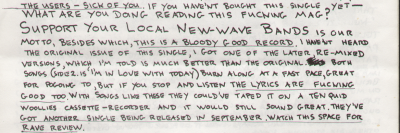 THE USERS - SICK OF YOU. IF YOU HAVEN'T BOUGHT THIS SINGLE YET -
WHAT ARE YOU DOING READING THIS FUCKING MAG?
SUPPORT YOUR LOCAL NEW-WAVE BANDS IS OUR
MOTTO, BESIDES WHICH, THIS IS A BLOODY GOOD RECORD. I HAVEN'T HEARD
THE ORIGINAL ISSUE OF THIS SINGLE, I GOT ONE OF THE LATER, RE-MIXED
VERSIONS, WHICH I'M TOLD IS MUCH BETTER THAN THE ORIGINAL. BOTH
SONGS (SIDE 2. IS 'I'M IN LOVE WITH TODAY) BURN ALONG AT A FAST PACE, GREAT
FOR POGOING TO, BUT IF YOU STOP AND LISTEN THE LYRICS ARE FUCKING
GOOD TOO. WITH SONGS LIKE THESE THEY COULD'VE TAPED IT ON A TEN QUID
WOOLLIES CASSETTE-RECORDER AND IT WOULD STILL SOUND GREAT. THEY'VE
GOT ANOTHER SINGLE BEING RELEASED IN SEPTEMBER. WATCH THIS SPACE FOR
RAVE REVIEW.